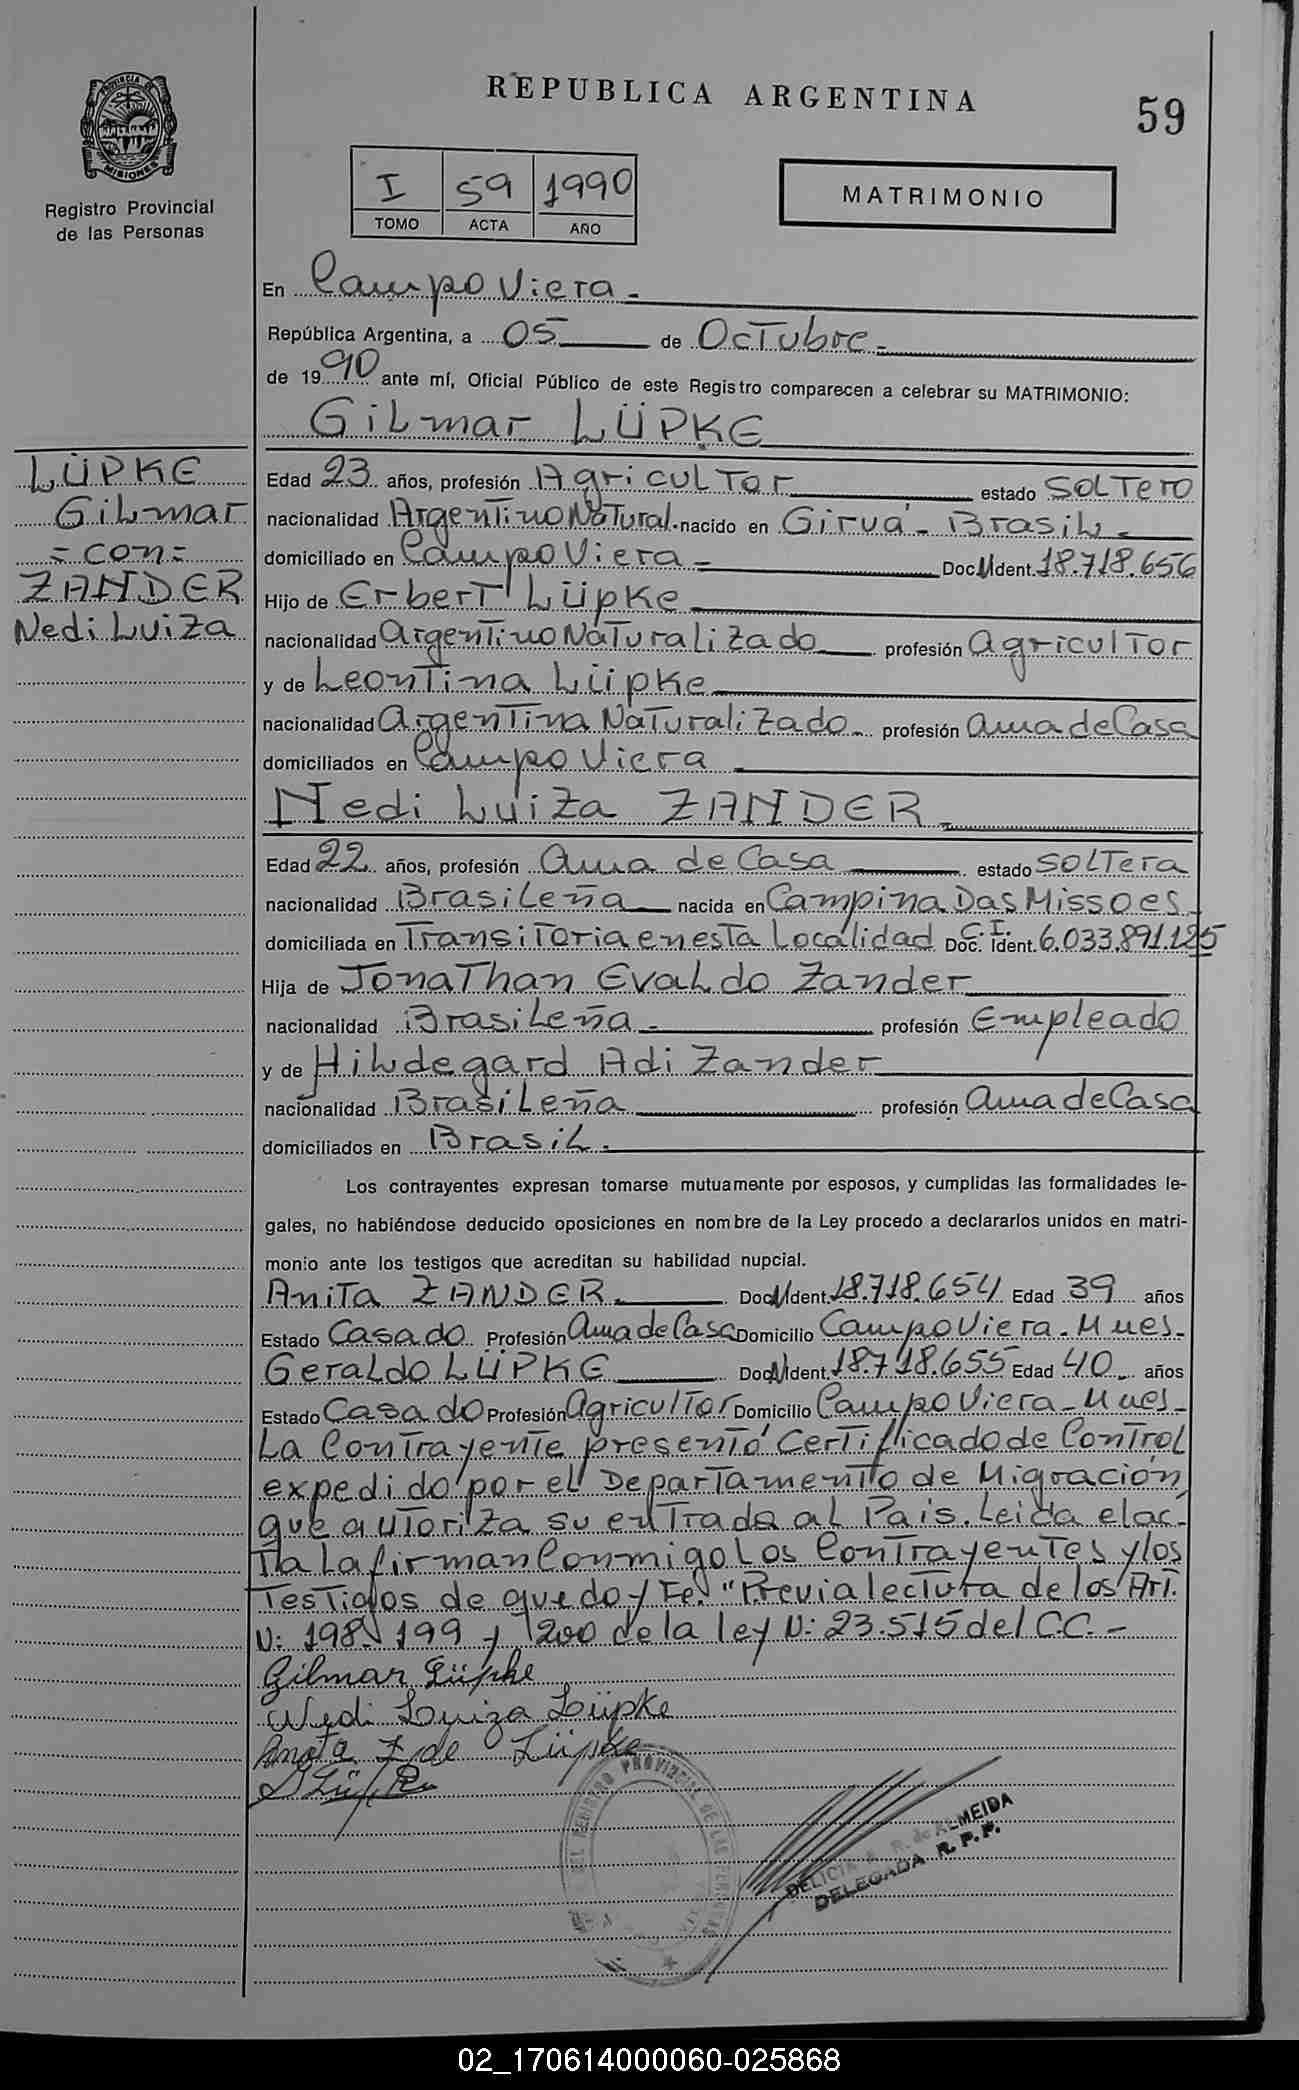 REPUBLICA ARGENTINA
59
PROVINCIA DE
MISIONES
Registro Provincial
de las Personas
I 59 1990
TOMO ACTA AÑO
MATRIMONIO
En Campo Viera.-
República Argentina, a 05 de Octubre.-
de 1990 ante mí, Oficial Público de este Registro comparecen a celebrar su MATRIMONIO:
Gilmar LÜPKE
LÜPKE
Gilmar
=con=
ZANDER
Nedi Luiza
Edad 23 años, profesión Agricultor estado Soltero
nacionalidad Argentino Natural. nacido en Giruá - Brasil.-
domiciliado en Campo Viera.- Doc. Ident. 18.718.656
Hijo de Erbert Lüpke
nacionalidad Argentino Naturalizado profesión Agricultor
y de Leontina Lüpke
nacionalidad Argentina Naturalizado.- profesión Ama de Casa
domiciliados en Campo Viera
Nedi Luiza ZANDER.
Edad 22 años, profesión Ama de Casa estado Soltera
nacionalidad Brasileña nacida en Campina Das Missoes
domiciliada en Transitoria en esta Localidad C.I. Doc. Ident. 6.033.891.125
Hija de Jonathan Evaldo Zander
nacionalidad Brasileña.- profesión Empleado
y de Hildegard Adi Zander
nacionalidad Brasileña profesión Ama de Casa
domiciliados en Brasil.
Los contrayentes expresan tomarse mutuamente por esposos, y cumplidas las formalidades le-
gales, no habiéndose deducido oposiciones en nombre de la Ley procedo a declararlos unidos en matri-
monio ante los testigos que acreditan su habilidad nupcial.
Anita ZANDER. Doc. Ident. 18.718.654 Edad 39 años
Estado Casado Profesión Ama de Casa Domicilio Campo Viera.-Mnes.-
Geraldo LÜPKE Doc. Ident. 18.718.655 Edad 40 años
Estado Casado Profesión Agricultor Domicilio Campo Viera-Mnes.-
La Contrayente presentó Certificado de Control
expedido por el Departamento de Migración,
que autoriza su entrada al Pais. Leida el ac-
ta La firman Conmigo Los Contrayentes y los
Testigos de que doy Fe. "Previa lectura de los Art.
N: 198. 199 y 200 de la ley N: 23.515 del C.C.-
Gilmar Lüpke
Nedi Luiza Lüpke
Anita Z de Lüpke
DEL REGISTRO PROVINCIAL DE LAS PERSONAS
DELICIA R. de ALMEIDA
DELEGADA R.P.P.
02_170614000060-025868